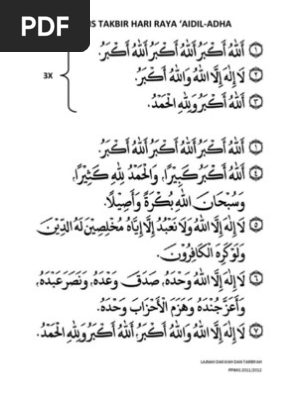 PDF
S TAKBIR HARI RAYA 'AIDIL-ADHA
3X
١ اَللهُ أَكْبَرُ اَللهُ أَكْبَرُ اَللهُ أَكْبَرُ.
٢ لَا إِلٰهَ إِلَّا اللهُ وَاللهُ أَكْبَرُ.
٣ اَللهُ أَكْبَرُ وَلِلّٰهِ الْحَمْدُ.
١ اَللهُ أَكْبَرُ اَللهُ أَكْبَرُ اَللهُ أَكْبَرُ.
٤ اَللهُ أَكْبَرُ كَبِيْرًا، وَالْحَمْدُ لِلّٰهِ كَثِيْرًا،
وَسُبْحَانَ اللهِ بُكْرَةً وَأَصِيْلًا.
٥ لَا إِلٰهَ إِلَّا اللهُ وَلَا نَعْبُدُ إِلَّا إِيَّاهُ مُخْلِصِيْنَ لَهُ الدِّيْنَ
وَلَوْ كَرِهَ الْكَافِرُوْنَ.
٦ لَا إِلٰهَ إِلَّا اللهُ وَحْدَهُ، صَدَقَ وَعْدَهُ، وَنَصَرَ عَبْدَهُ،
وَأَعَزَّ جُنْدَهُ وَهَزَمَ الْأَحْزَابَ وَحْدَهُ.
٧ لَا إِلٰهَ إِلَّا اللهُ وَاللهُ أَكْبَرُ، اَللهُ أَكْبَرُ وَلِلّٰهِ الْحَمْدُ.
2011/2012